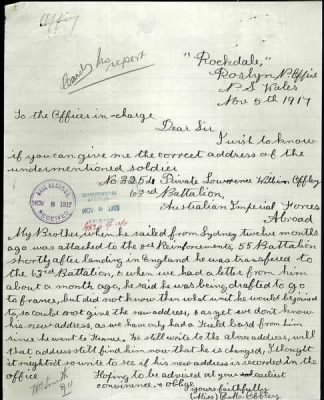 report
"Rockdale,"
Roslyn P. Office
N S Wales
Nov 5th 1917
To the Officer in charge
Dear Sir
I wish to know
if you can give me the correct address of the
undermentioned soldier
No 3254 Private Lawrence William
63rd Battalion,
Australian Imperial Forces
Abroad
BASE RECORDS
NOV 8 1917
RECEIVED
NOV 8 1917
My Brother, when he sailed from Sydney twelve months
ago was attached to the Reinforcements, 55 Battalion
shortly after landing in England he was transfered to
the 63rd Battalion, & when we had a letter from him
about a month ago, he said he was being drafted to go
to france, but did not know then what unit he would be joind
to, so could not give the new address, & as yet we don't know
his new address, as we have only had a Field Card from him
since he went to France. We still write to the above address, will
that address still find him now that he is changed, I thought
it might to write to see if his new address is recorded in the
office
Hoping to be advised at your earliest
convinence, & oblige
yours faithfully
(Miss)